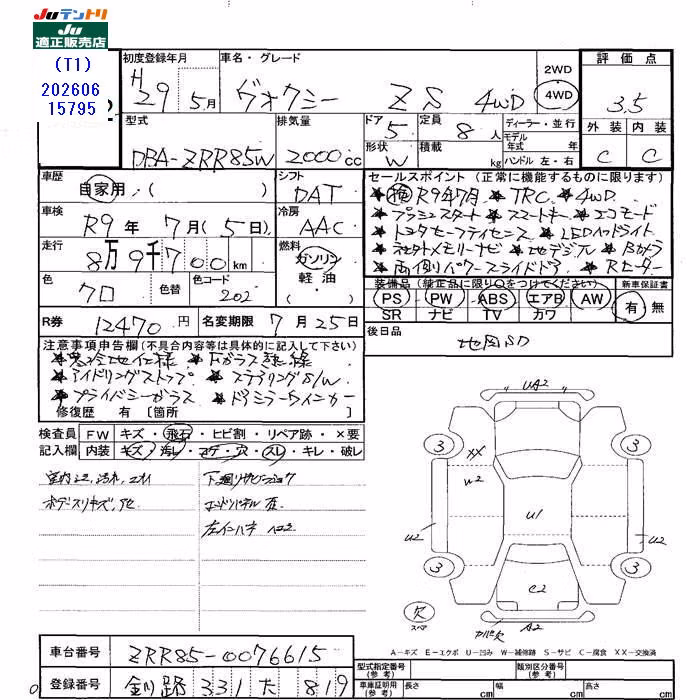 Juテントリ
Ju
適正販売店
(T1)
202606
15795
初度登録年月
H29 5月
車名・グレード
ヴォクシー ZS 4WD
2WD
4WD
評価点
3.5
外装 内装
C C
型式
DBA-ZRR85W
排気量
2000cc
ドア
5
形状
W
定員
8人
積載
kg
ディーラー・並行
モデル
年式 年
ハンドル 左・右
車歴
自家用・( )
シフト
DAT
セールスポイント (正常に機能するものに限ります)
★検R9年7月 ★TRC ★4WD
★プッシュスタート ★スマートキー ★エコモード
★トヨタセーフティセンス ★LEDヘッドライト
★地デジTV ★Bカメラ
★両側パワースライドドア ★Rヒーター
車検
R9年 7月(5日)
冷房
AAC
走行
8万9千700km
燃料
ガソリン
軽・油
( )
色
クロ
色替
色コード
202
装備品 (純正品に限り○をつけてください)
PS PW ABS エアB AW
SR ナビ TV カワ
新車保証書
有 無
R券
12470円
名変期限
7月25日
後日品
地図SD
注意事項申告欄(不具合内容等は具体的に記入して下さい)
★寒冷地仕様 ★Fガラス熱線
★アイドリングストップ ★ステアリングS/W
★プライバシーガラス ★ドアミラーウィンカー
修復歴 有 〔箇所
検査員
記入欄
FW キズ・飛石・ヒビ割・リペア跡・×要
内装 キズ・汚レ・コゲ・穴・スレ・キレ・破レ
UA2
3 3
XX
W2
U2
U1
U2
3 3
C2
欠
スペア
A2
A-キズ E-エクボ U-凹み W-補修跡 S-サビ C-腐食 XX-交換済
車台番号
ZRR85-0076615
登録番号
釧路 331 た 819
型式指定番号
(参考)
類別区分番号
(参考)
車庫証明用
(参考)
長さ cm
幅 cm
高さ cm